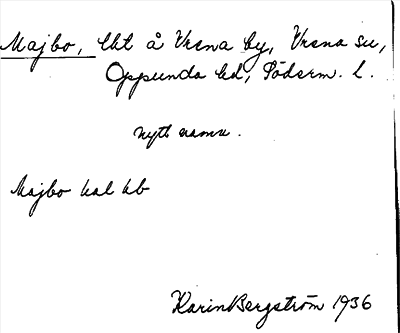 Majbo, lht å Vrena by, Vrena sn,
Oppunda hd, Söderm. l.
nytt namn.
Majbo hal hb
Karin Bergström 1936